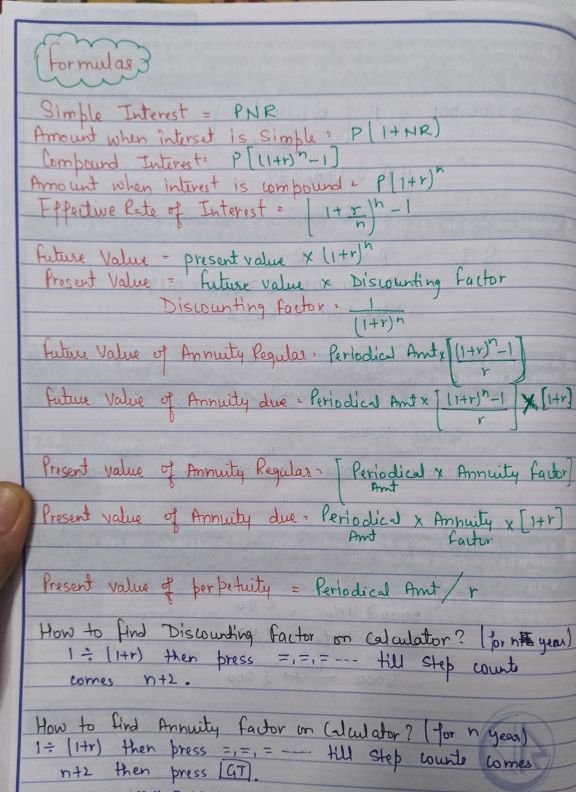 Formulas
Simple Interest = PNR
Amount when interset is Simple = P(1+NR)
Compound Interest = P[(1+r)ⁿ-1]
Amount when intirest is compound = P(1+r)ⁿ
Effective Rate of Interest = (1+r/n)ⁿ-1
Future Value = present value × (1+r)ⁿ
Present Value = future value × Discounting factor
Discounting factor = 1/(1+r)ⁿ
Future Value of Annuity Regular = Periodical Amt × [(1+r)ⁿ-1/r]
Future Value of Annuity due = Periodical Amt × [(1+r)ⁿ-1/r] × [1+r]
Present value of Annuity Regular = [Periodical Amt × Annuity factor]
Present value of Annuity due = Periodical Amt × Annuity factor × [1+r]
Present value of perpetuity = Periodical Amt / r
How to find Discounting factor on calculator? (for n year)
1 ÷ (1+r) then press =,=,= ---- till step counts
comes n+2.
How to find Annuity factor on Calculator? (for n year)
1 ÷ (1+r) then press =,=,= ----- till step counts comes
n+2 then press GT.